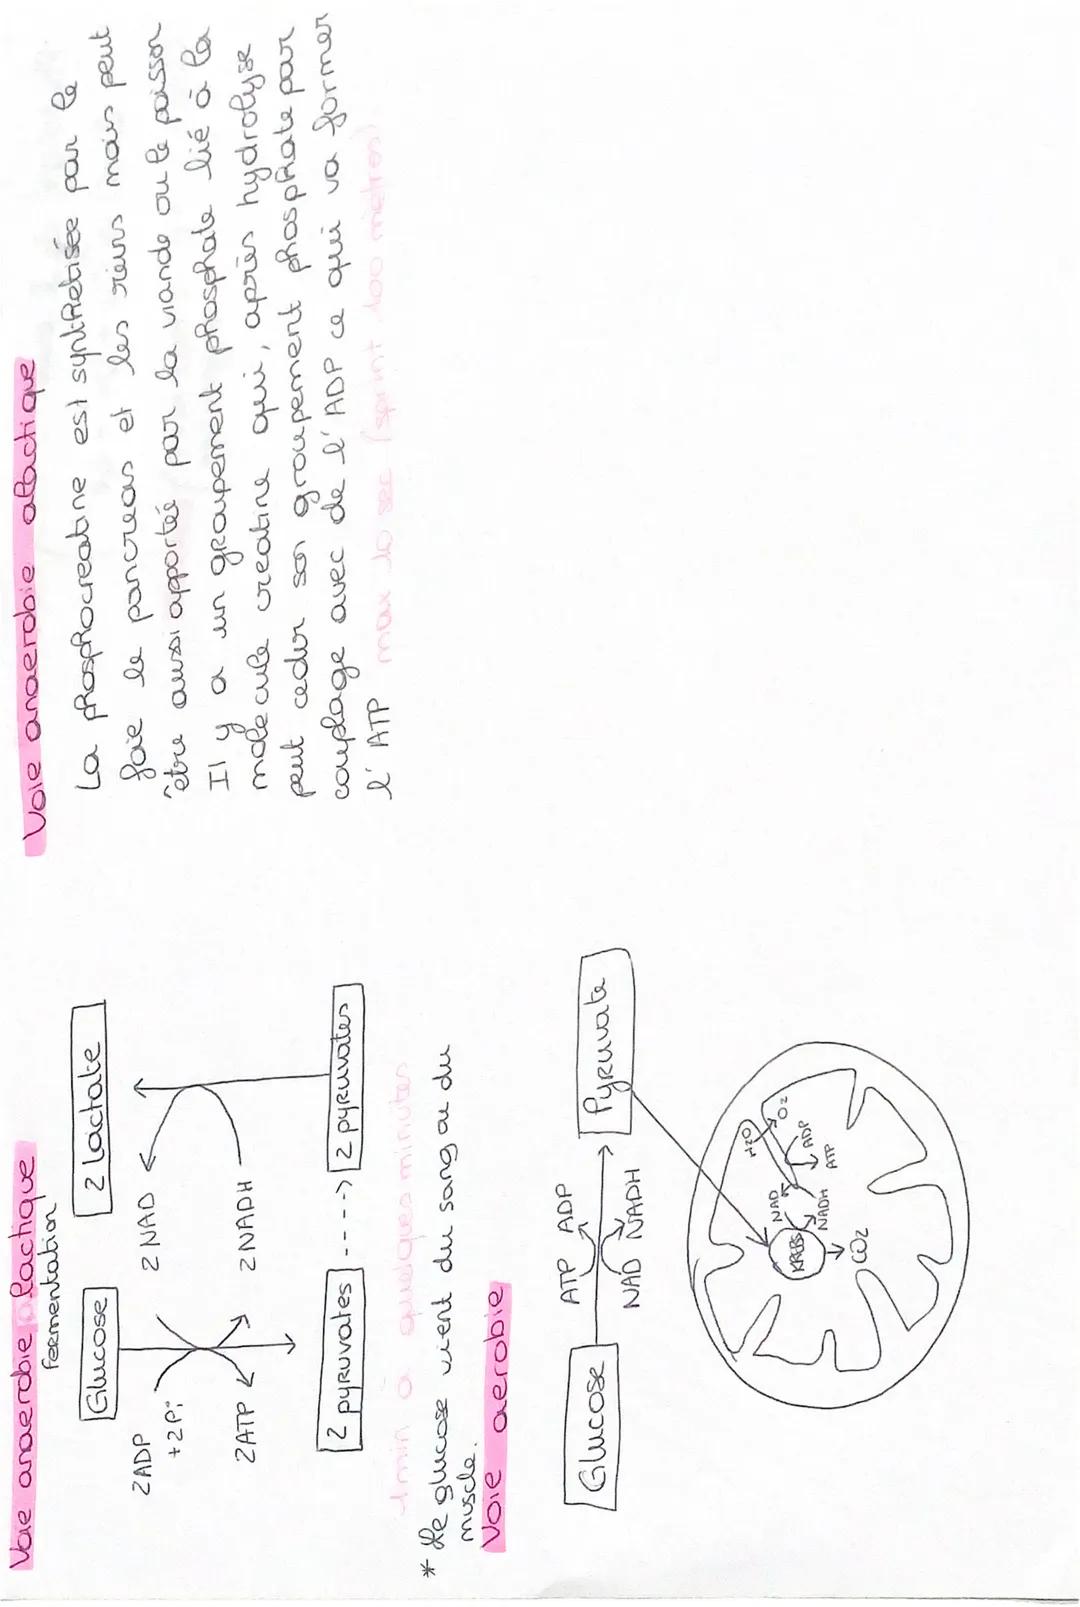 Voie anaerobie lactique
fermentation
Glucose
2 lactate
2ADP
+2Pi
2 NAD
2ATP
2 NADH
2 pyruvates
2 pyruvates
1 min a quelques minutes
* Le glucose vient du sang ou du
muscle.
Voie aerobie
Glucose
ATP ADP
NAD NADH
Pyruvate
KREBS
NAD
NADH
CO2
H2O
O2
ADP
ATP
Voie anaerobie alactique
La phosphocreatine est synthetisée par le
foie le pancreas et les reins mais peut
être aussi apportée par la viande ou le poisson
Il y a un groupement phosphate lié à la
molecule creatine qui, après hydrolyse
peut ceder son groupement phosphate par
couplage avec de l'ADP ce qui va former
l'ATP max 10 sec (sprint 100 mètres)